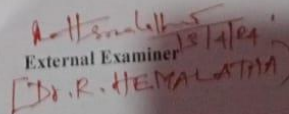 13/4/24
External Examiner
[Dr. R. HEMALATHA)